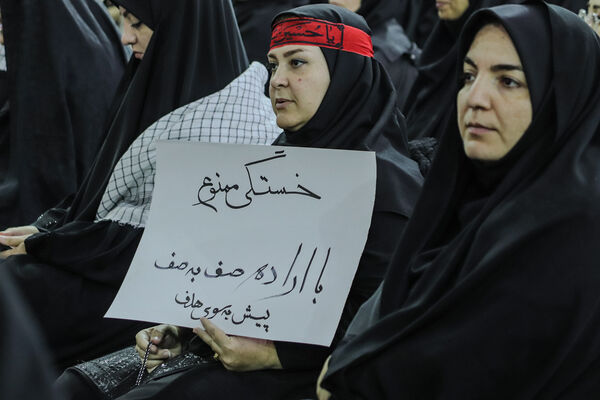 یا حسین
خستگی ممنوع
با اراده صف به صف
پیش به سوی هدف